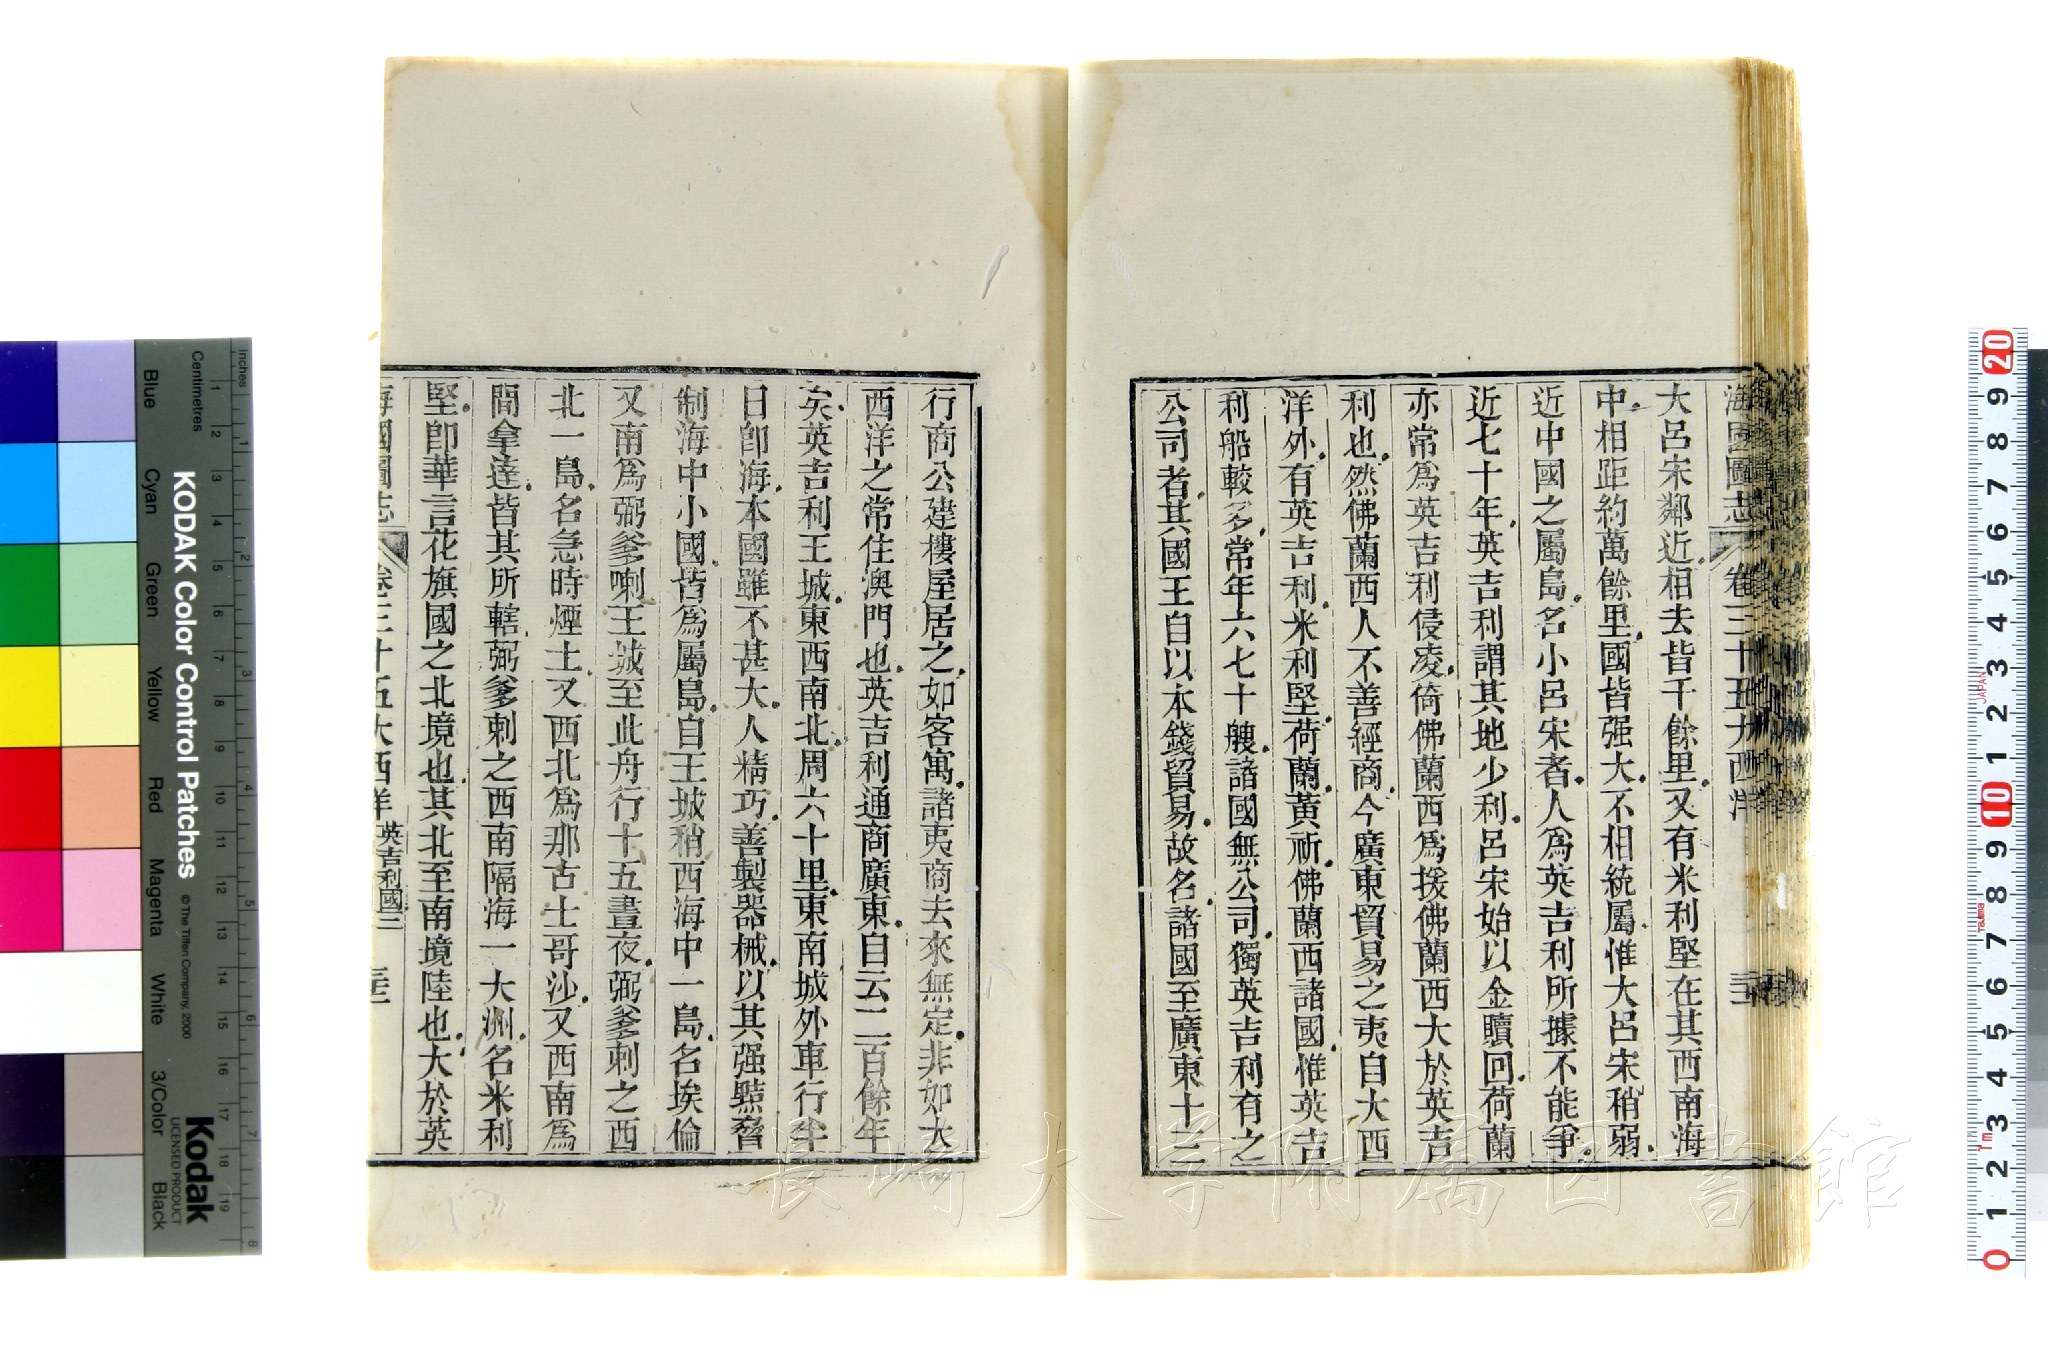 海國圖志 卷三十五大西洋
大呂宋鄰近相去皆千餘里又有米利堅在其西南海
中相距約萬餘里國皆强大不相統屬惟大呂宋稍弱
近中國之屬島名小呂宋者人爲英吉利所據不能爭
近七十年英吉利謂其地少利呂宋始以金贖回荷蘭
亦常爲英吉利侵凌倚佛蘭西爲援佛蘭西大於英吉
利也然佛蘭西人不善經商今廣東貿易之夷自大西
洋外有英吉利米利堅荷蘭黃祈佛蘭西諸國惟英吉
利船較多常年六七十艘諸國無公司獨英吉利有之
公司者其國王自以本錢貿易故名諸國至廣東十三
行商公建樓屋居之如客寓諸夷商去來無定非如大
西洋之常住澳門也英吉利通商廣東自云二百餘年
矣英吉利王城東西南北周六十里東南城外車行半
日卽海本國雖不甚大人精巧善製器械以其强黠脅
制海中小國皆爲屬島自王城稍西海中一島名埃倫
又南爲弼爹喇王城至此舟行十五晝夜弼爹刺之西
北一島名急時煙土又西北爲那古士哥沙又西南爲
間拿達皆其所轄弼爹刺之西南隔海一大洲名米利
堅卽華言花旗國之北境也其北至南境陸也大於英
海國圖志 卷三十五大西洋 英吉利國三 三
KODAK Color Control Patches © The Tiffen Company, 2000
Kodak
LICENSED PRODUCT
Inches
Centimetres
Blue Cyan Green Yellow Red Magenta White 3/Color Black
1 2 3 4 5 6 7 8 9 10 11 12 13 14 15 16 17 18 19
1 2 3 4 5 6 7 8
20 9 8 7 6 5 4 3 2 1 10 9 8 7 6 5 4 3 2 1 0
JAPAN
1m
長崎大学附属図書館